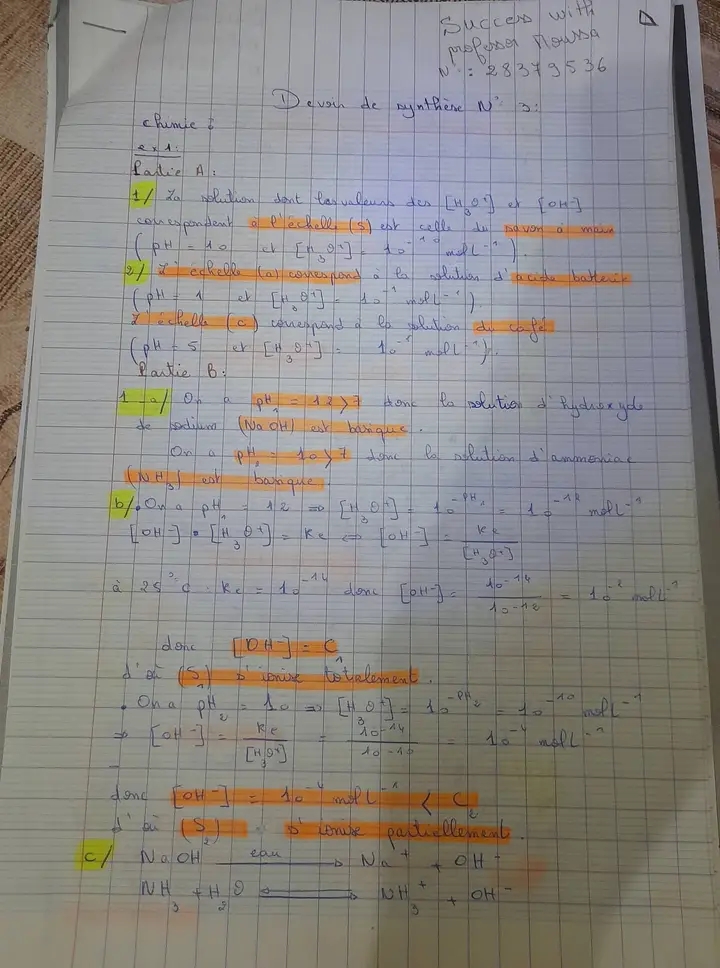 Success with
professor Moussa
N° : 28379536
Devoir de synthèse N° 3:
chimie :
ex 1:
Partie A :
1/ La solution dont les valeurs des [H3O+] et [OH-]
correspondent à l'échelle (5) est celle du savon à main
( pH = 10 et [H3O+] = 10^-10 mol L^-1 ).
2/ L'échelle (a) correspond à la solution d'acide batterie
( pH = 1 et [H3O+] = 10^-1 mol L^-1 ).
L'échelle (c) correspond à la solution du café
( pH = 5 et [H3O+] = 10^-5 mol L^-1 ).
Partie B :
1 - a/ On a pH1 = 12 > 7 donc la solution d'hydroxyde
de sodium (NaOH) est basique .
On a pH2 = 10 > 7 donc la solution d'ammoniac
(NH3) est basique
b/ . On a pH1 = 12 => [H3O+] = 10^-pH1 = 10^-12 mol L^-1
[OH-] • [H3O+] = Ke <=> [OH-] = Ke / [H3O+]
à 25°C . Ke = 10^-14 donc [OH-] = 10^-14 / 10^-12 = 10^-2 mol L^-1
donc [OH-] = C1
d'où (S1) s'ionise totalement .
. On a pH2 = 10 => [H3O+] = 10^-pH2 = 10^-10 mol L^-1
=> [OH-] = Ke / [H3O+] = 10^-14 / 10^-10 = 10^-4 mol L^-1
donc [OH-] = 10^-4 mol L^-1 < C2
d'où (S2) s'ionise partiellement .
c/ NaOH eau → Na+ + OH-
NH3 + H2O ⇌ NH3+ + OH-